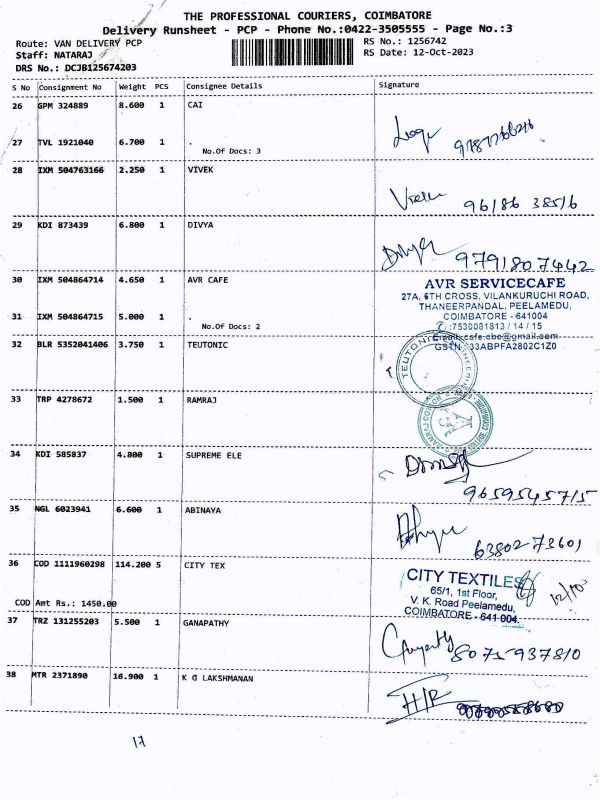 THE PROFESSIONAL COURIERS, COIMBATORE
Delivery Runsheet - PCP - Phone No.:0422-3505555 - Page No.:3
Route: VAN DELIVERY PCP RS No.: 1256742
Staff: NATARAJ RS Date: 12-Oct-2023
DRS No.: DCJB125674203
S No Consignment No Weight PCS Consignee Details Signature
26 GPM 324889 8.600 1 CAI
27 TVL 1921040 6.700 1 .
No.Of Docs: 3
28 IXM 504763166 2.250 1 VIVEK
96186 38516
29 KDI 873439 6.800 1 DIVYA
9791807442
30 IXM 504864714 4.650 1 AVR CAFE
AVR SERVICECAFE
27A, 6TH CROSS, VILANKURUCHI ROAD,
THANEERPANDAL, PEELAMEDU,
COIMBATORE - 641004
31 IXM 504864715 5.000 1 .
No.Of Docs: 2
:7530081813 / 14 / 15
GSTN : 33ABPFA2802C1Z0
32 BLR 5352041406 3.750 1 TEUTONIC
TEUTONIC
33 TRP 4278672 1.500 1 RAMRAJ
34 KDI 585837 4.800 1 SUPREME ELE
9659545715
35 NGL 6023941 6.600 1 ABINAYA
63802-73601
36 COD 1111960298 114.200 5 CITY TEX
CITY TEXTILES
65/1, 1st Floor,
V. K. Road Peelamedu,
COIMBATORE - 641 004.
12/10
COD Amt Rs.: 1450.00
37 TRZ 131255203 5.500 1 GANAPATHY
8075937810
38 MTR 2371890 16.900 1 K G LAKSHMANAN
17